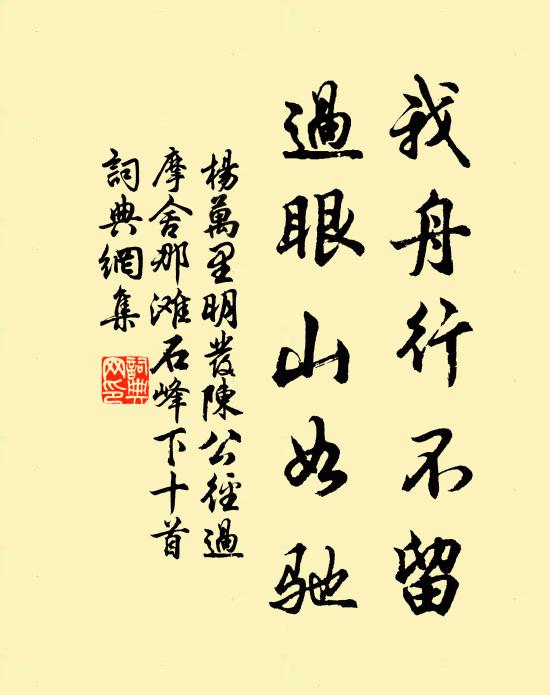 我舟行不留
過眼山如馳
楊萬里明發陳公徑過
摩舍那滩石峰下十首
詞典網集
詞典网印